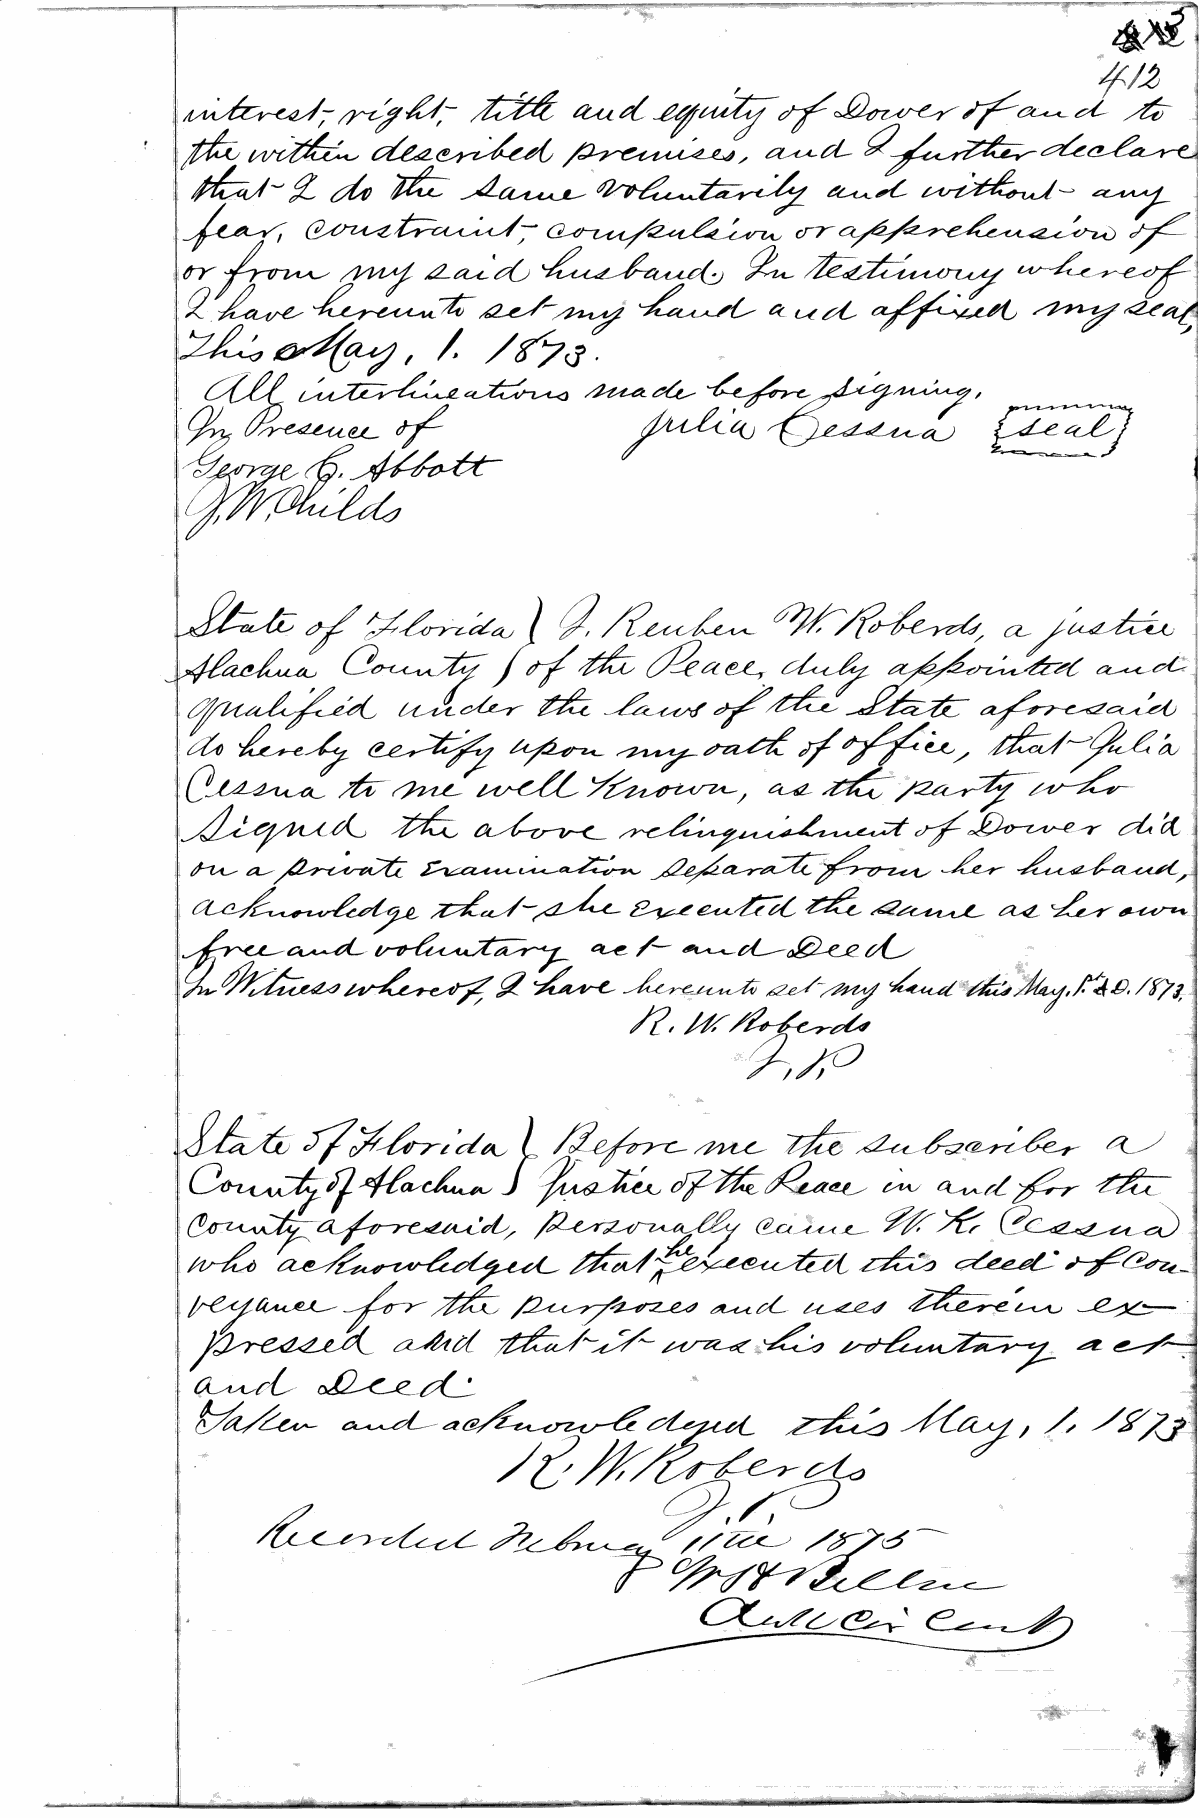 412
interest, right, title and equity of Dower of and to
the within described premises, and I further declare
that I do the same voluntarily and without any
fear, constraint, compulsion or apprehension of
or from my said husband. In testimony whereof
I have hereunto set my hand and affixed my seal,
This May, 1. 1873.
All interlineations made before signing.
In Presence of Julia Cessna seal
George C. Abbott
J. W. Childs
State of Florida } I. Reuben W. Roberds, a justice
Alachua County } of the Peace, duly appointed and
qualified under the laws of the State aforesaid
do hereby certify upon my oath of office, that Julia
Cessna to me well Known, as the party who
Signed the above relinquishment of Dower did
on a private Examination separate from her husband,
acknowledge that she Executed the same as her own
free and voluntary act and Deed
In Witness whereof, I have hereunto set my hand this May, 1st A.D. 1873.
R. W. Roberds
J. P.
State of Florida } Before me the subscriber a
County of Alachua } Justice of the Peace in and for the
County aforesaid, personally came W. K. Cessna
who acknowledged that he executed this deed of Con-
veyance for the purposes and uses therein ex-
pressed and that it was his voluntary act
and Deed.
Taken and acknowledged this May, 1. 1873
R. W. Roberds
J. P.
Recorded February 1875
Clerk Cir Court